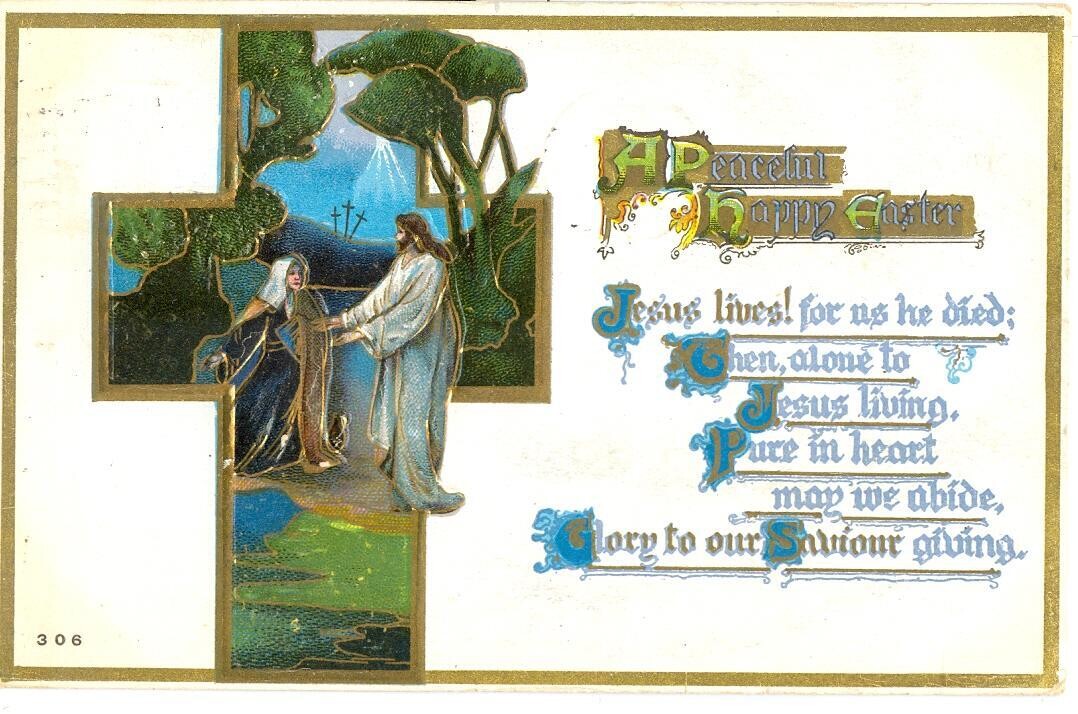 A Peaceful
Happy Easter
Jesus lives! for us he died;
Then, alone to
Jesus living,
Pure in heart
may we abide,
Glory to our Saviour giving.
306